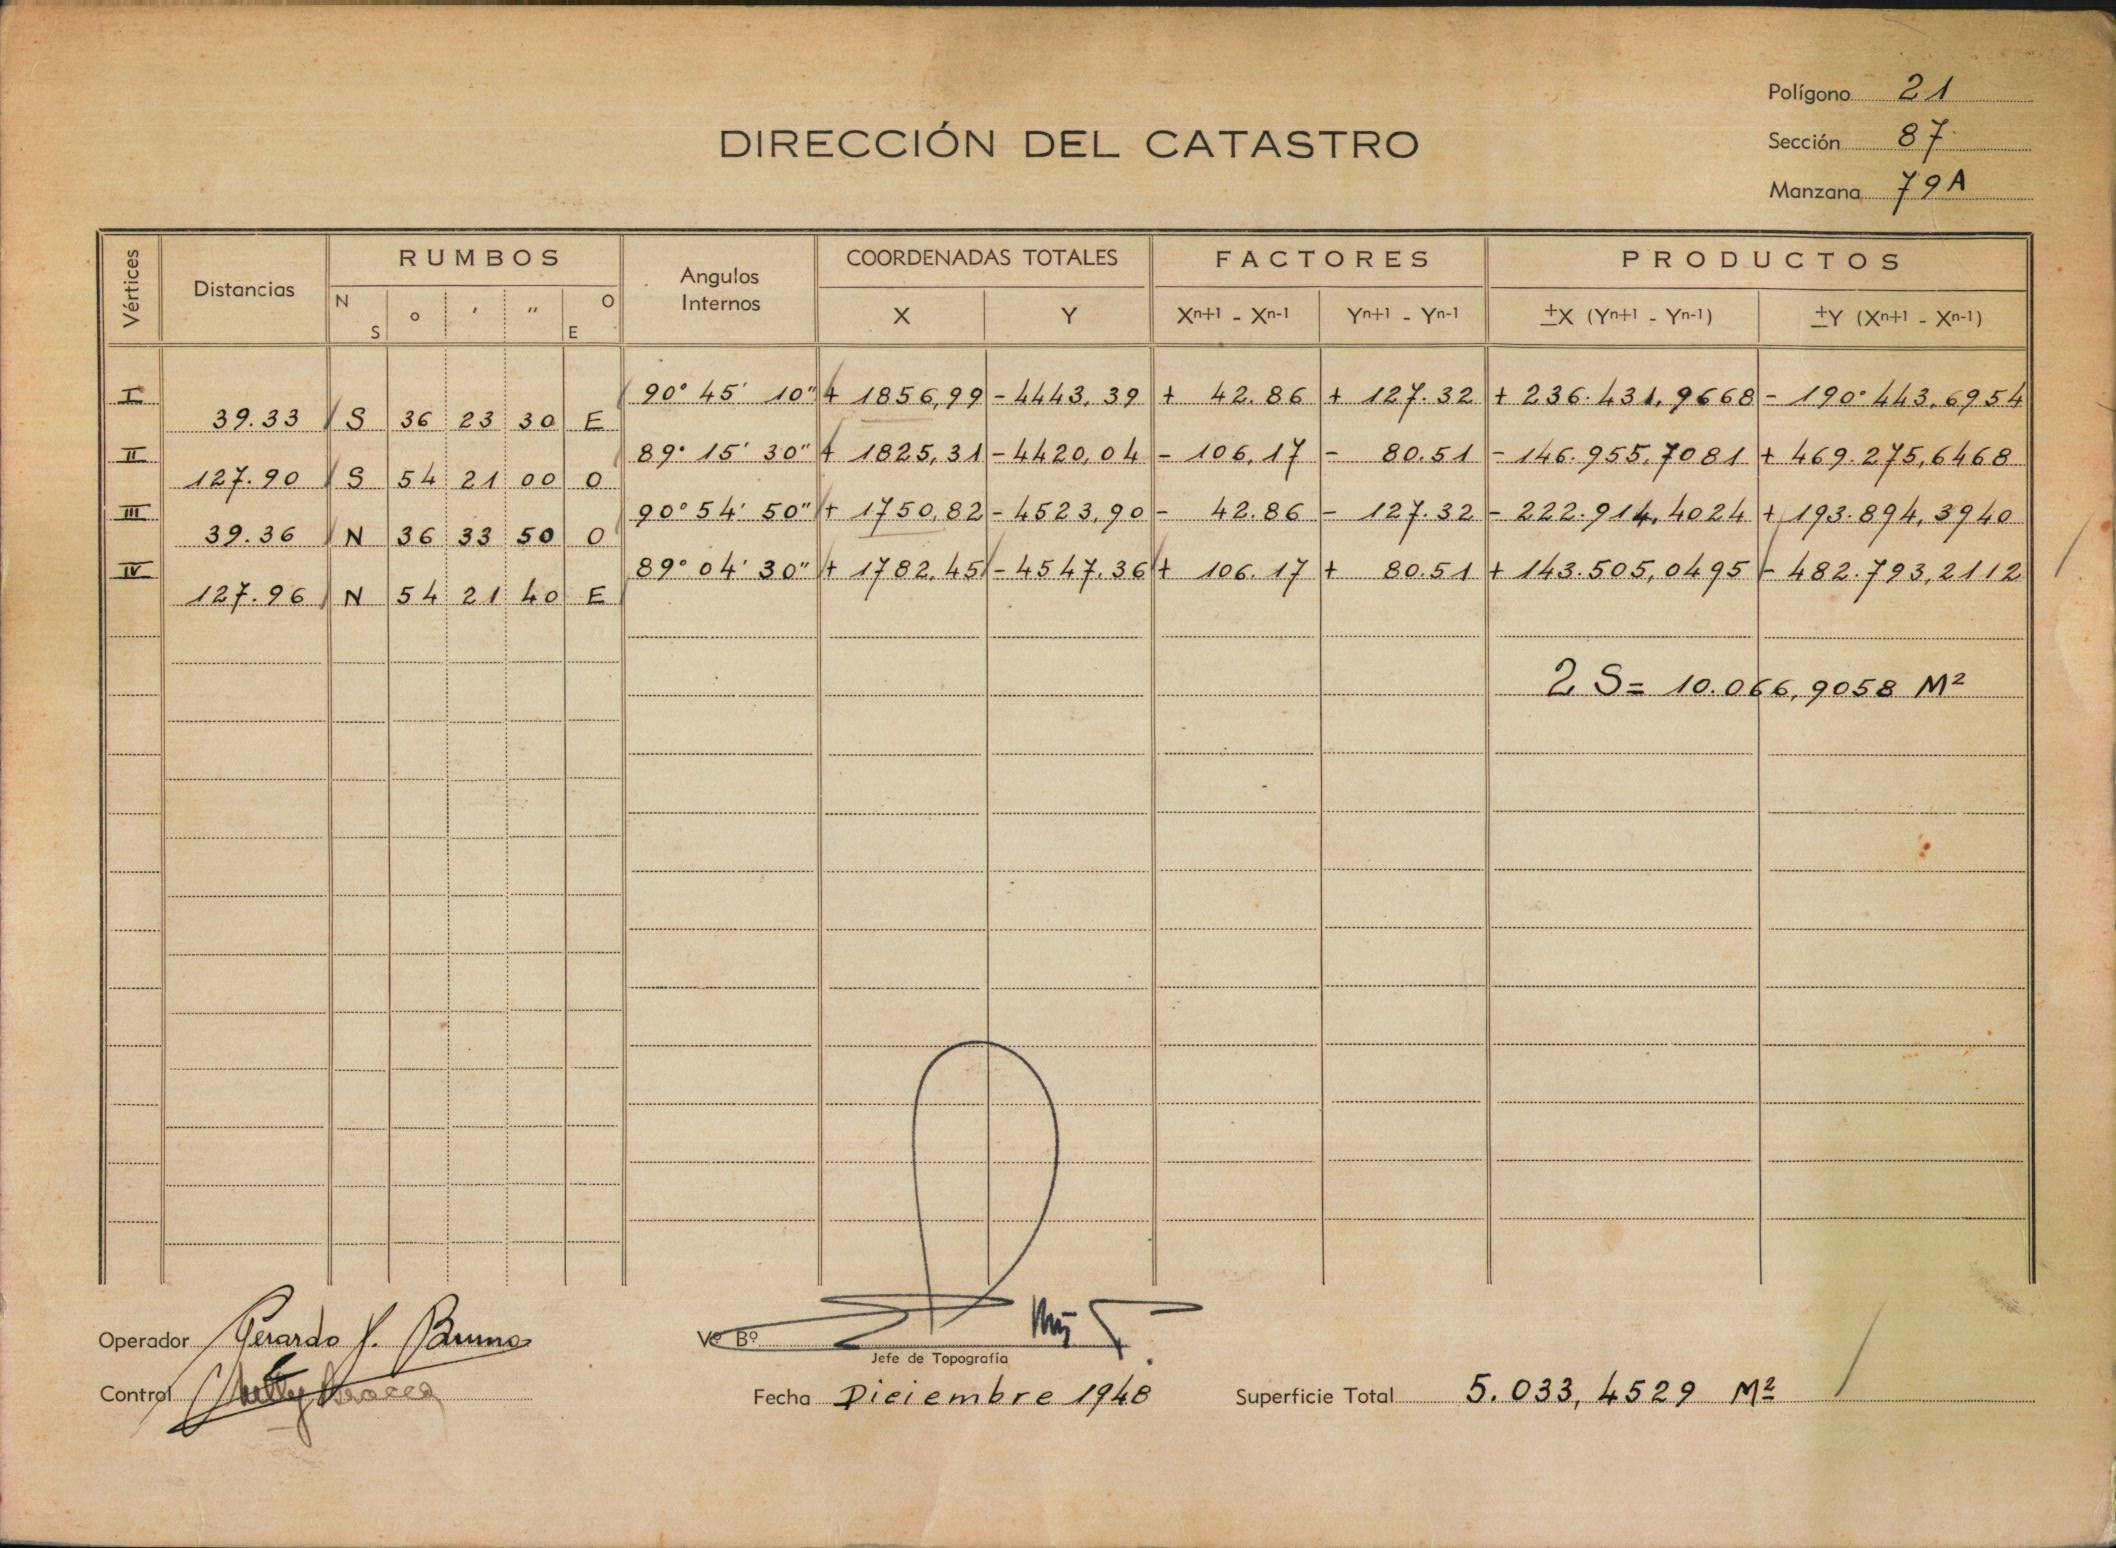 Polígono 21
DIRECCIÓN DEL CATASTRO
Sección 87
Manzana 79A
Vértices Distancias RUMBOS Angulos Internos COORDENADAS TOTALES FACTORES PRODUCTOS
N S ° ' " O E X Y Xn+1 - Xn-1 Yn+1 - Yn-1 ±X (Yn+1 - Yn-1) ±Y (Xn+1 - Xn-1)
I 90° 45' 10" + 1856,99 - 4443,39 + 42.86 + 127.32 + 236.431,9668 - 190.443,6954
39.33 S 36 23 30 E
II 89° 15' 30" + 1825,31 - 4420,04 - 106,17 - 80.51 - 146.955,7081 + 469.275,6468
127.90 S 54 21 00 O
III 90° 54' 50" + 1750,82 - 4523,90 - 42.86 - 127.32 - 222.914,4024 + 193.894,3940
39.36 N 36 33 50 O
IV 89° 04' 30" + 1782.45 - 4547.36 + 106.17 + 80.51 + 143.505,0495 - 482.793,2112
127.96 N 54 21 40 E
2 S = 10.066,9058 M²
Operador Gerardo J. Bruno
Vº Bº
Jefe de Topografía
Control
Fecha Diciembre 1948
Superficie Total 5.033,4529 M²